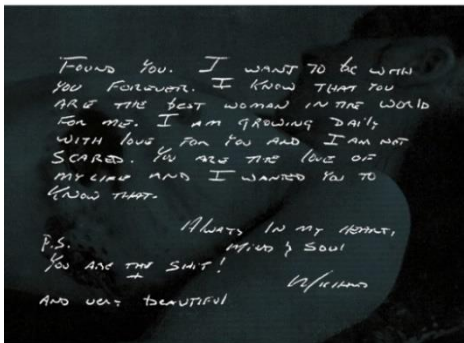 FOUND YOU. I WANT TO BE WITH
YOU FOREVER. I KNOW THAT YOU
ARE THE BEST WOMAN IN THE WORLD
FOR ME. I AM GROWING DAILY
WITH LOVE FOR YOU AND I AM NOT
SCARED. YOU ARE THE LOVE OF
MY LIFE AND I WANTED YOU TO
KNOW THAT.
ALWAYS IN MY HEART,
MIND & SOUL
P.S.
YOU ARE THE SHIT!
AND VERY BEAUTIFUL